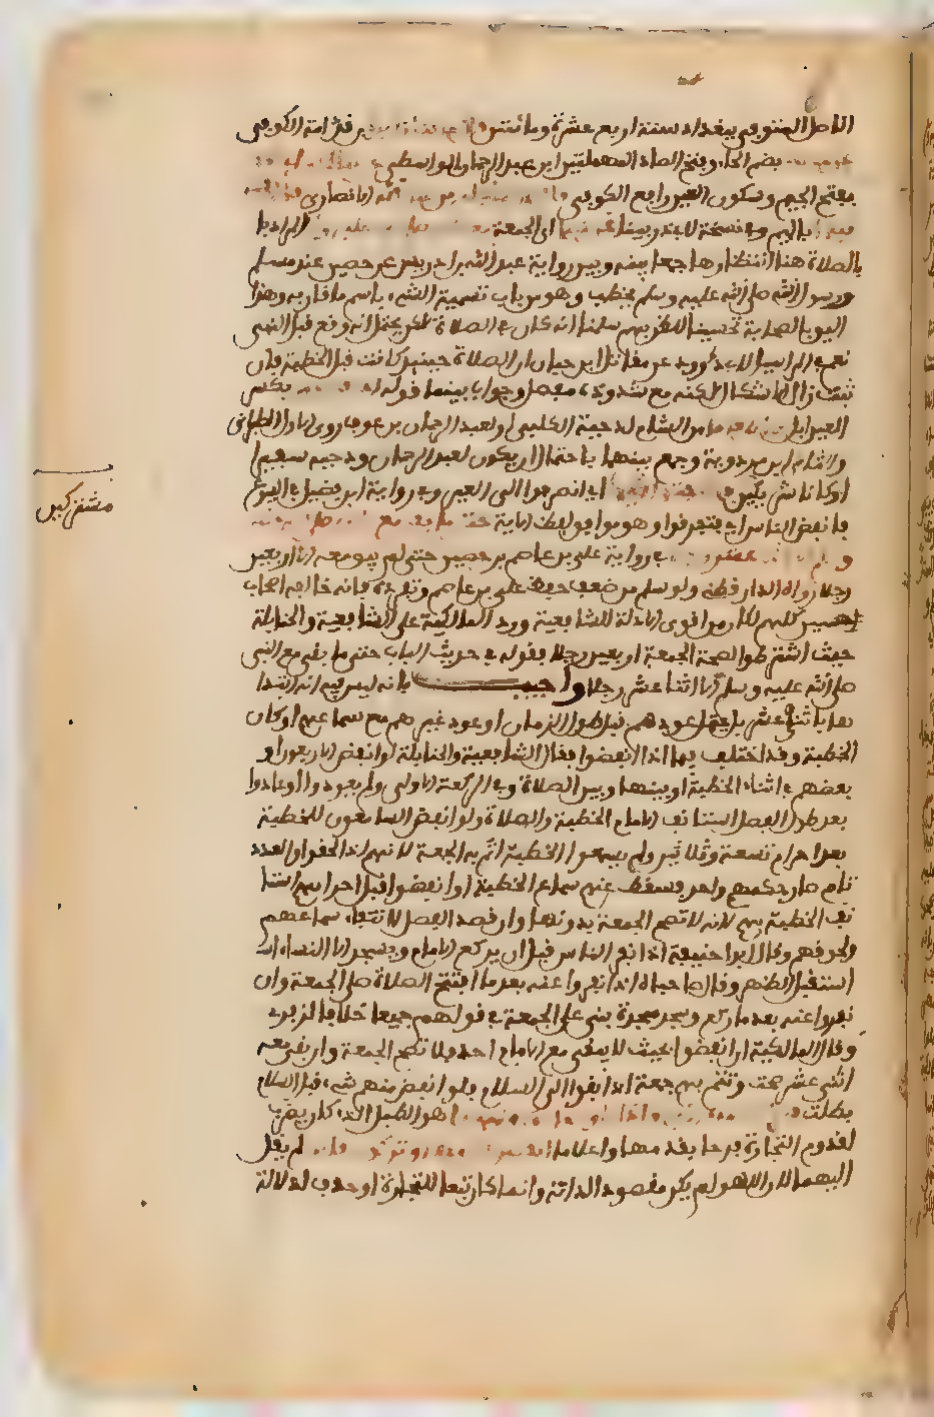 الاصل المتوفى ببغداد سنة اربع عشرة ومائتين قال حدثنا زايدة بن قدامة الكوفي
عن حصين بضم الحاء وفتح الصاد المهملتين ابن عبد الرحمان الواسطي عن سالم بن ابي الجعد
بفتح الجيم وسكون العين رافع الكوفي قال حدثنا جابر بن عبد الله الانصاري قال بينما
بالميم وفي نسخة لابي ذر بينا نحن نصلي اي الجمعة مع النبي صلى الله عليه وسلم المراد
بالصلاة هنا انتظارها جمعا بينه وبين رواية عبد الله بن ادريس عن حصين عند مسلم
ورسول الله صلى الله عليه وسلم يخطب وهو من باب تسمية الشيء باسم ما قاربه وهذا
اليق بالصحابة تحسينا للظن بهم سلمنا انه كان في الصلاة لكن يحتمل انه وقع قبل النهي
نعم في المراسيل لابي داوود عن مقاتل بن حيان ان الصلاة حينئذ كانت قبل الخطبة فان
ثبت زال الاشكال لكنه مع شذوذه معضل وجواب بينما قوله اذ اقبلت بكسر
العير ابل تحمل طعاما من الشام لدحية الكلبي او لعبد الرحمان بن عوف روى الاول الطبراني
والثاني ابن مردوية وجمع بينهما باحتمال ان يكون لعبد الرحمان ودحية سفيرا
او كانا مشتركين فالتفتوا اليها اي انصرفوا الى العير وفي رواية ابن فضيل في البيوع
فانفض الناس اي فتفرقوا وهو موافق لفظ الاية حتى ما بقي مع النبي صلى الله عليه
وسلم الا اثنا عشر رجلا في رواية علي بن عاصم عن حصين حتى لم يبق معه الا اربعين
رجلا رواه الدارقطني ولو سلم من ضعف حفظ علي بن عاصم وتفرده فانه خالفه اصحاب
حصين كلهم لكان من اقوى الادلة للشافعية ورد المالكية على الشافعية والحنابلة
حيث اشترطوا لصحة الجمعة اربعين رجلا بقوله في حديث الباب حتى ما بقي مع النبي
صلى الله عليه وسلم الا اثنا عشر رجلا واجيب بانه ليس فيه انه ابتدا
ها باثني عشر بل يحتمل عودهم قبل طول الزمان او عود غيرهم مع سماعهم اركان
الخطبة وقد اختلف فيما اذا انفضوا فقال الشافعية والحنابلة لو انفض الاربعون او
بعضهم في اثناء الخطبة او بينها وبين الصلاة او في الركعة الاولى ولم يعودوا او عادوا
بعد طول الفصل استانف الامام الخطبة والصلاة ولو انفض السامعون للخطبة
بعد احرام تسعة وثلاثين ولم يسمعوا الخطبة اتم بهم الجمعة لانهم اذا لحقوا والعدد
تام صار حكمهم واحد فسقط عنهم سماع الخطبة او انفضوا قبل احرامهم استا
نف الخطبة بهم لانه لا تصح الجمعة بدونها وان قصر الفصل لانتفاء سماعهم
ولحوقهم وقال ابو حنيفة اذا نفر الناس قبل ان يركع الامام ويسجد الا النساء
استقبل الظهر وقال صاحباه اذا نفروا عنه بعد ما افتتح الصلاة صلى الجمعة وان
نفروا عنه بعد ما ركع وسجد سجدة بنى على الجمعة في قولهم جميعا خلافا لزفر
وقال المالكية ان انفضوا بحيث لا يبقى مع الامام احد فلا تصح الجمعة وان بقي معه
اثنى عشر صحت وتتم بهم جمعة اذا بقوا الى السلام فلو انفض منهم شيء قبل السلام
بطلت فنزلت واذا راوا تجارة او لهوا هو الطبل الذي كان يضرب
لقدوم التجارة فرحا بقدومها واعلاما انفضوا اليها وتركوك قائما لم يقل
اليهما لان اللهو لم يكن مقصودا لذاته وانما كان تبعا للتجارة او حذف لدلالة
مشتركين